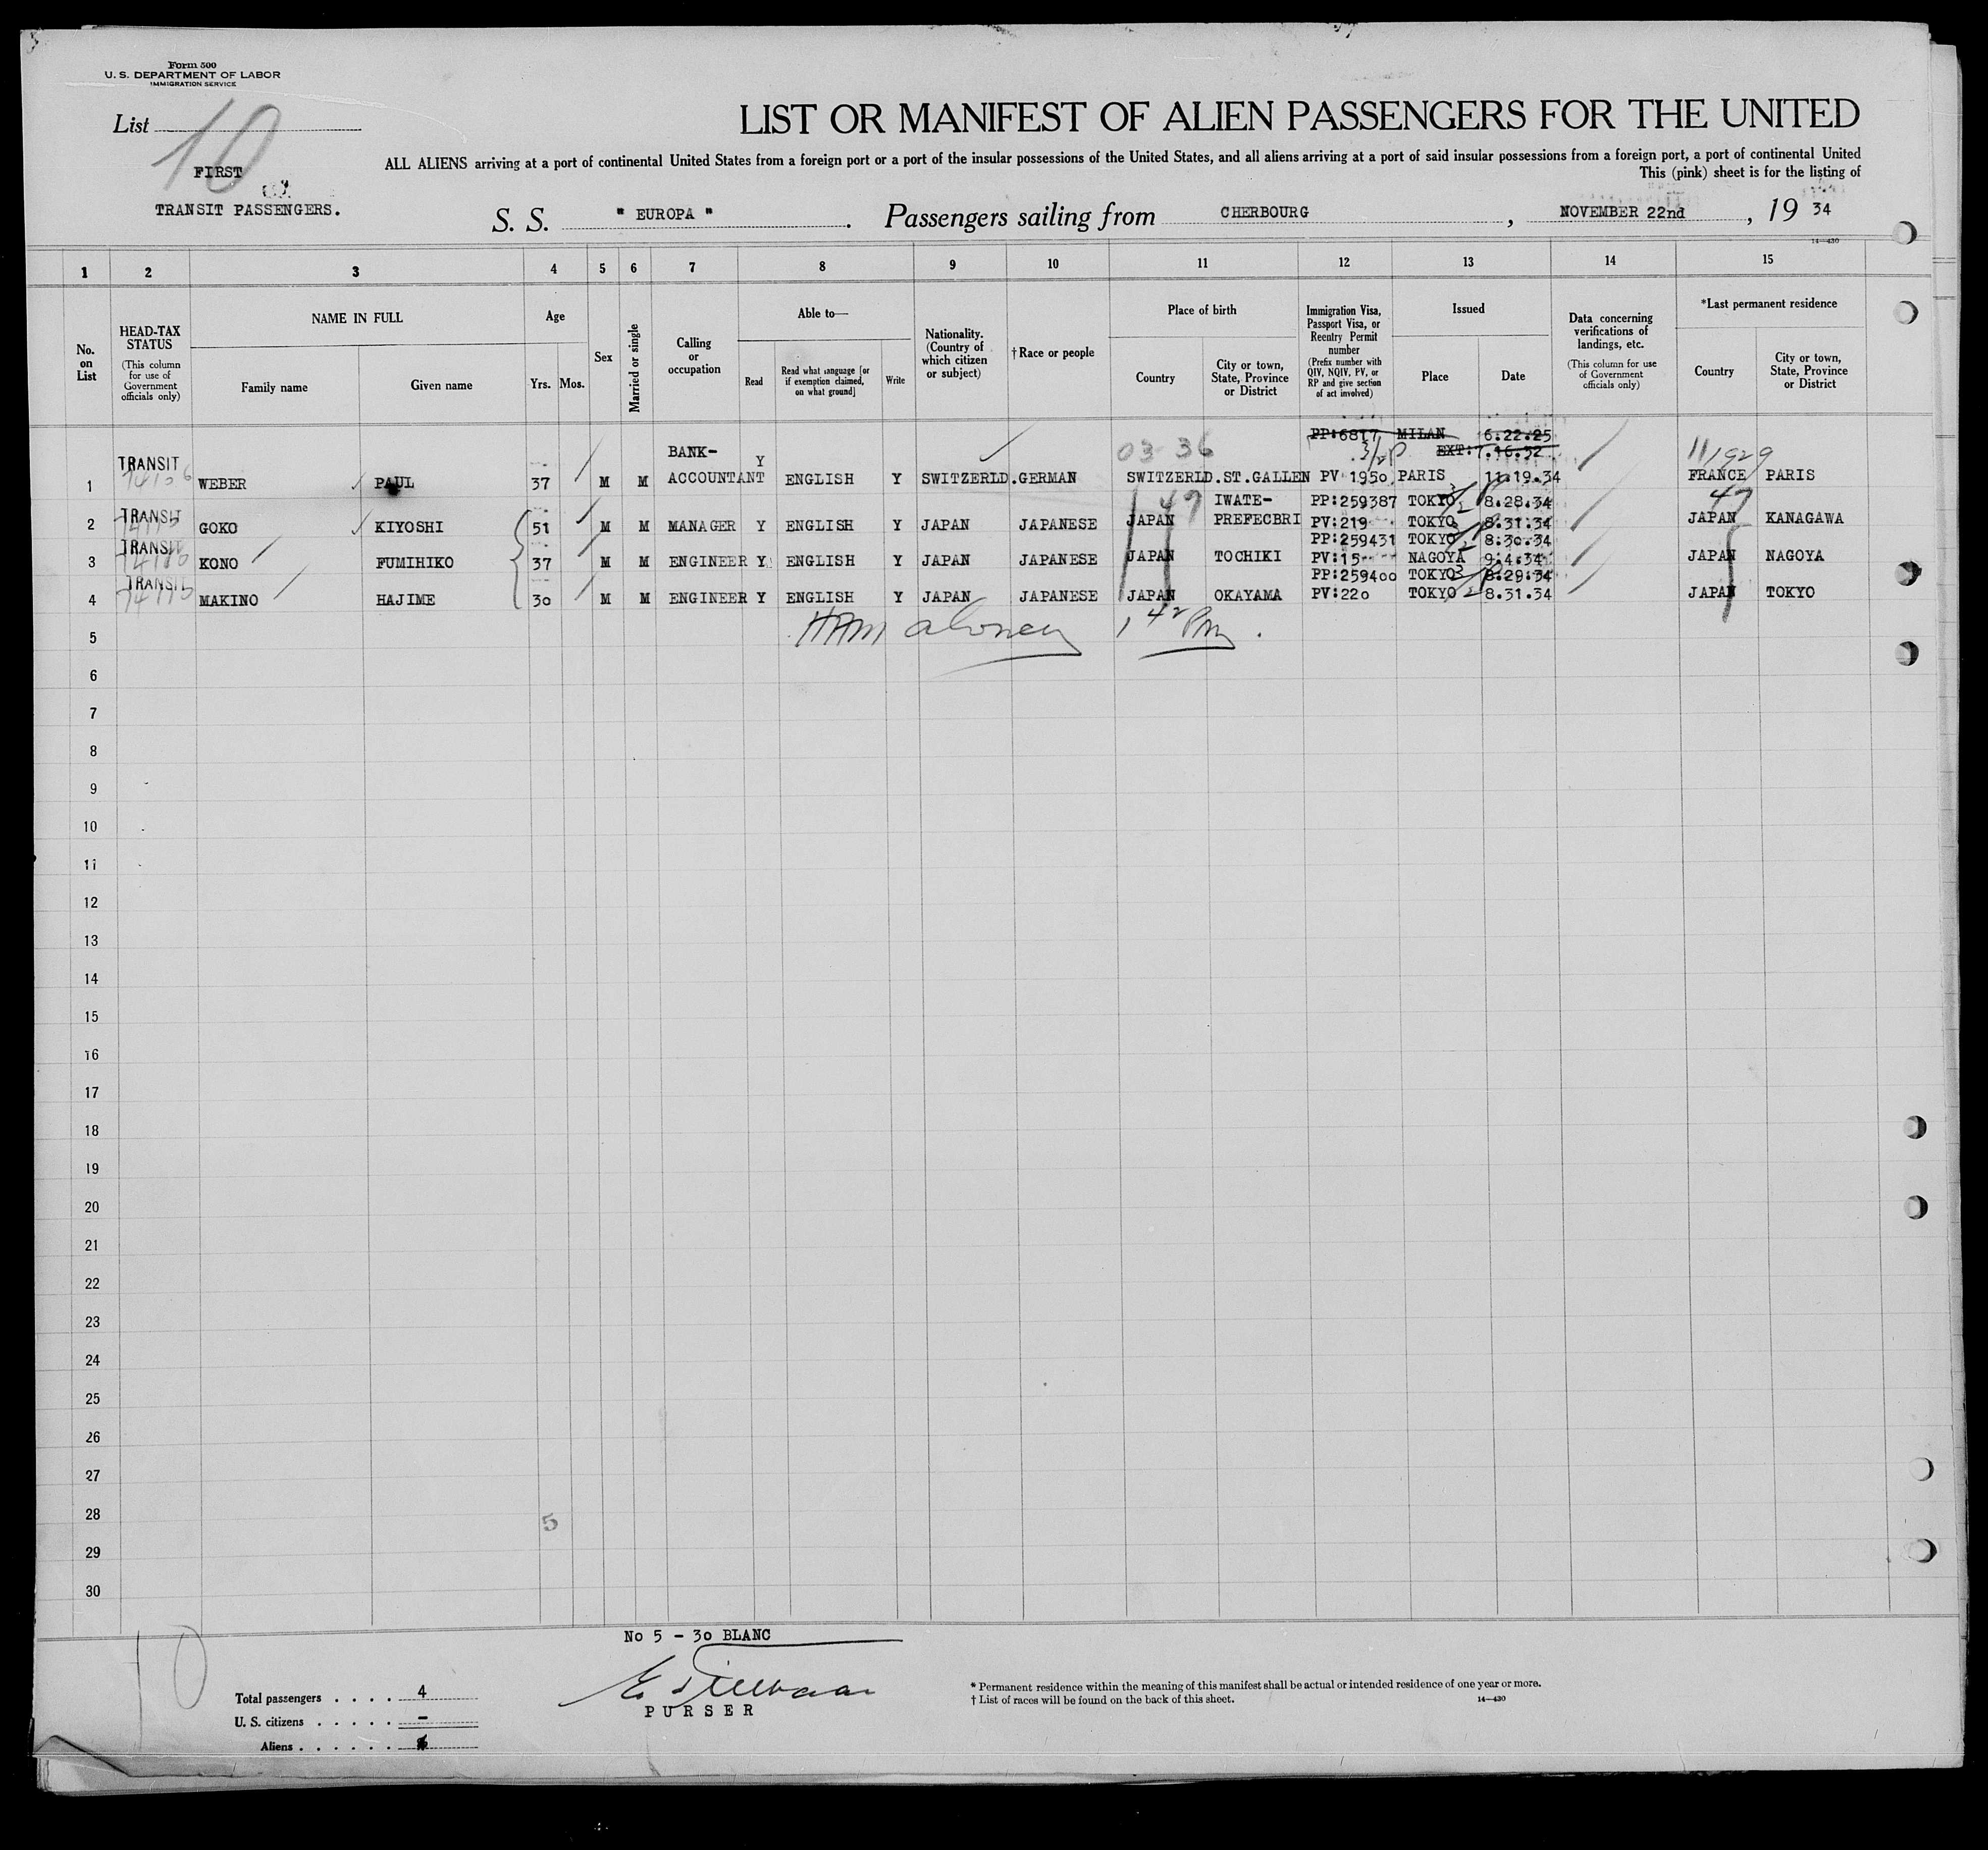 Form 500
U. S. DEPARTMENT OF LABOR
IMMIGRATION SERVICE
List 10
FIRST
TRANSIT PASSENGERS.
LIST OR MANIFEST OF ALIEN PASSENGERS FOR THE UNITED
ALL ALIENS arriving at a port of continental United States from a foreign port or a port of the insular possessions of the United States, and all aliens arriving at a port of said insular possessions from a foreign port, a port of continental United
This (pink) sheet is for the listing of
S. S. " EUROPA " . Passengers sailing from CHERBOURG , NOVEMBER 22nd , 19 34
14—430
1 2 3 4 5 6 7 8 9 10 11 12 13 14 15
No. on List
HEAD-TAX STATUS
(This column for use of Government officials only)
NAME IN FULL
Family name
Given name
Age
Yrs. Mos.
Sex
Married or single
Calling or occupation
Able to—
Read
Read what language [or if exemption claimed, on what ground]
Write
Nationality. (Country of which citizen or subject)
† Race or people
Place of birth
Country
City or town, State, Province or District
Immigration Visa, Passport Visa, or Reentry Permit number
(Prefix number with QIV, NQIV, PV, or RP and give section of act involved)
Issued
Place
Date
Data concerning verifications of landings, etc.
(This column for use of Government officials only)
*Last permanent residence
Country
City or town, State, Province or District
PP:6817 MILAN 6.22.25
BANK- 03 36 EXT:7.16.32 11/1929
1 TRANSIT WEBER PAUL 37 M M ACCOUNTANT Y ENGLISH Y SWITZERLD. GERMAN SWITZERLD. ST.GALLEN PV 1950 PARIS 11.19.34 FRANCE PARIS
49 IWATE- PP:259387 TOKYO 8.28.34 49
2 TRANSIT GOKO KIYOSHI 51 M M MANAGER Y ENGLISH Y JAPAN JAPANESE JAPAN PREFECBRI PV:219 TOKYO 8.31.34 JAPAN KANAGAWA
PP:259431 TOKYO 8.30.34
3 TRANSIT KONO FUMIHIKO 37 M M ENGINEER Y ENGLISH Y JAPAN JAPANESE JAPAN TOCHIKI PV:15 NAGOYA 9.4.34 JAPAN NAGOYA
PP:259400 TOKYO 8.29.34
4 TRANSIT MAKINO HAJIME 30 M M ENGINEER Y ENGLISH Y JAPAN JAPANESE JAPAN OKAYAMA PV:220 TOKYO 8.31.34 JAPAN TOKYO
5 1 42 Pm.
6
7
8
9
10
11
12
13
14
15
16
17
18
19
20
21
22
23
24
25
26
27
28 5
29
30
No 5 - 30 BLANC
10
PURSER
Total passengers . . . . 4
U. S. citizens . . . . . -
Aliens . . . . . .
* Permanent residence within the meaning of this manifest shall be actual or intended residence of one year or more.
† List of races will be found on the back of this sheet.
14—430